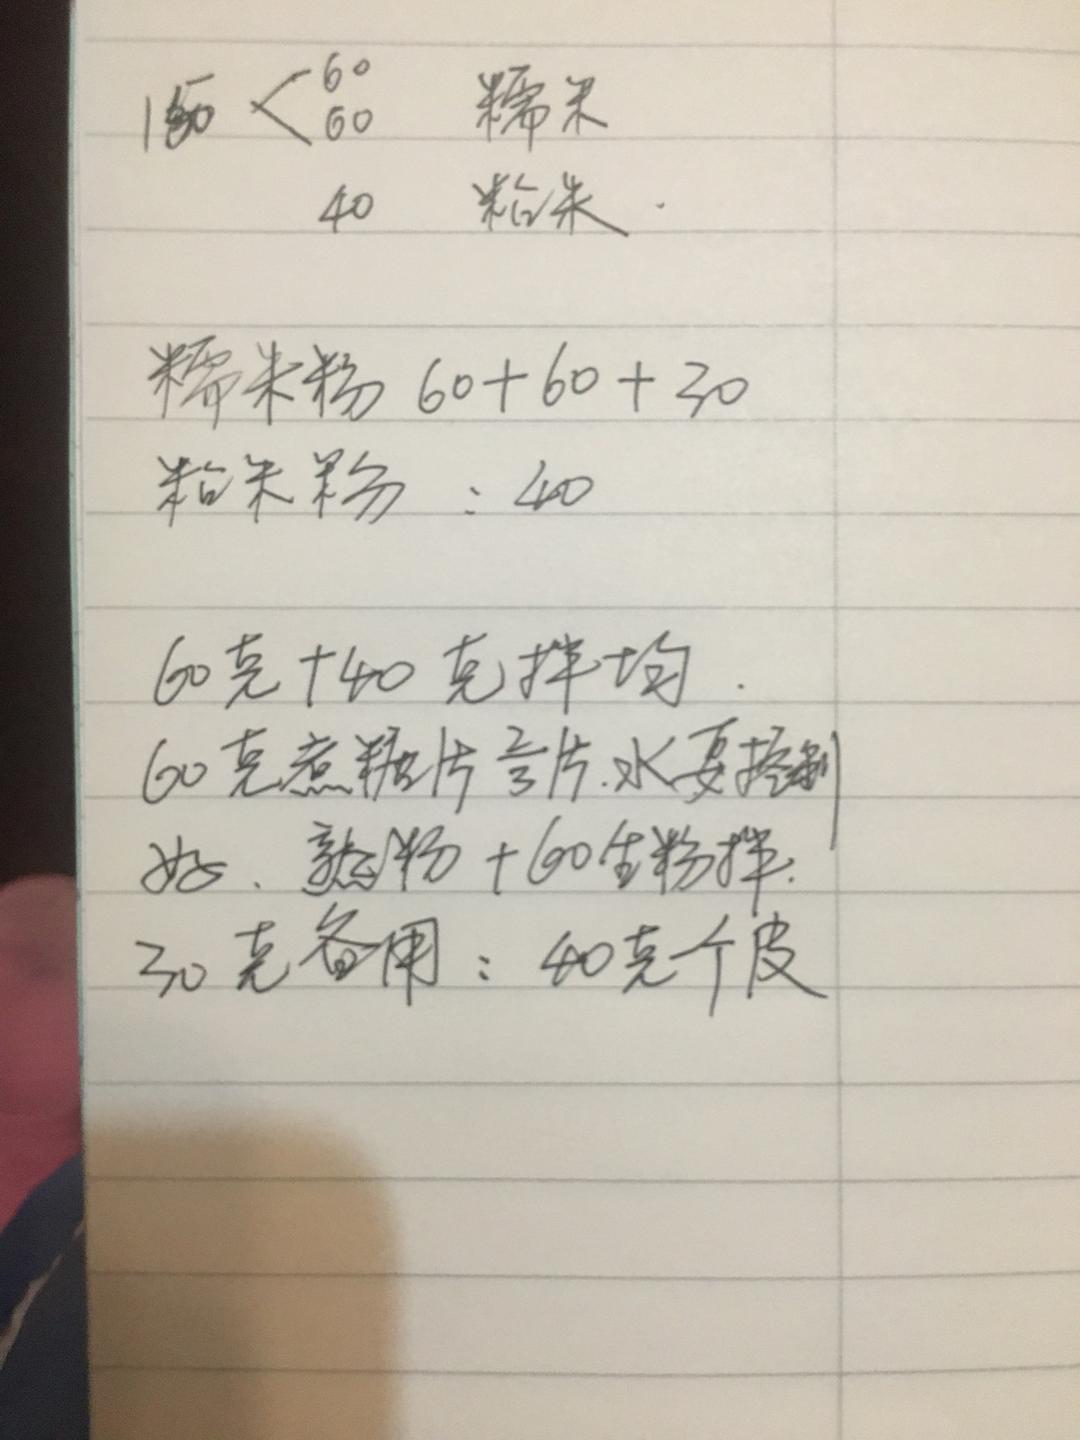 150 < 60
60 糯米
40 粘米.
糯米粉 60+60+30
粘米粉:40
60克+40克拌均.
60克煮糖片 片.水要控制
好、熟粉+60生粉拌.
30克备用:40克个皮